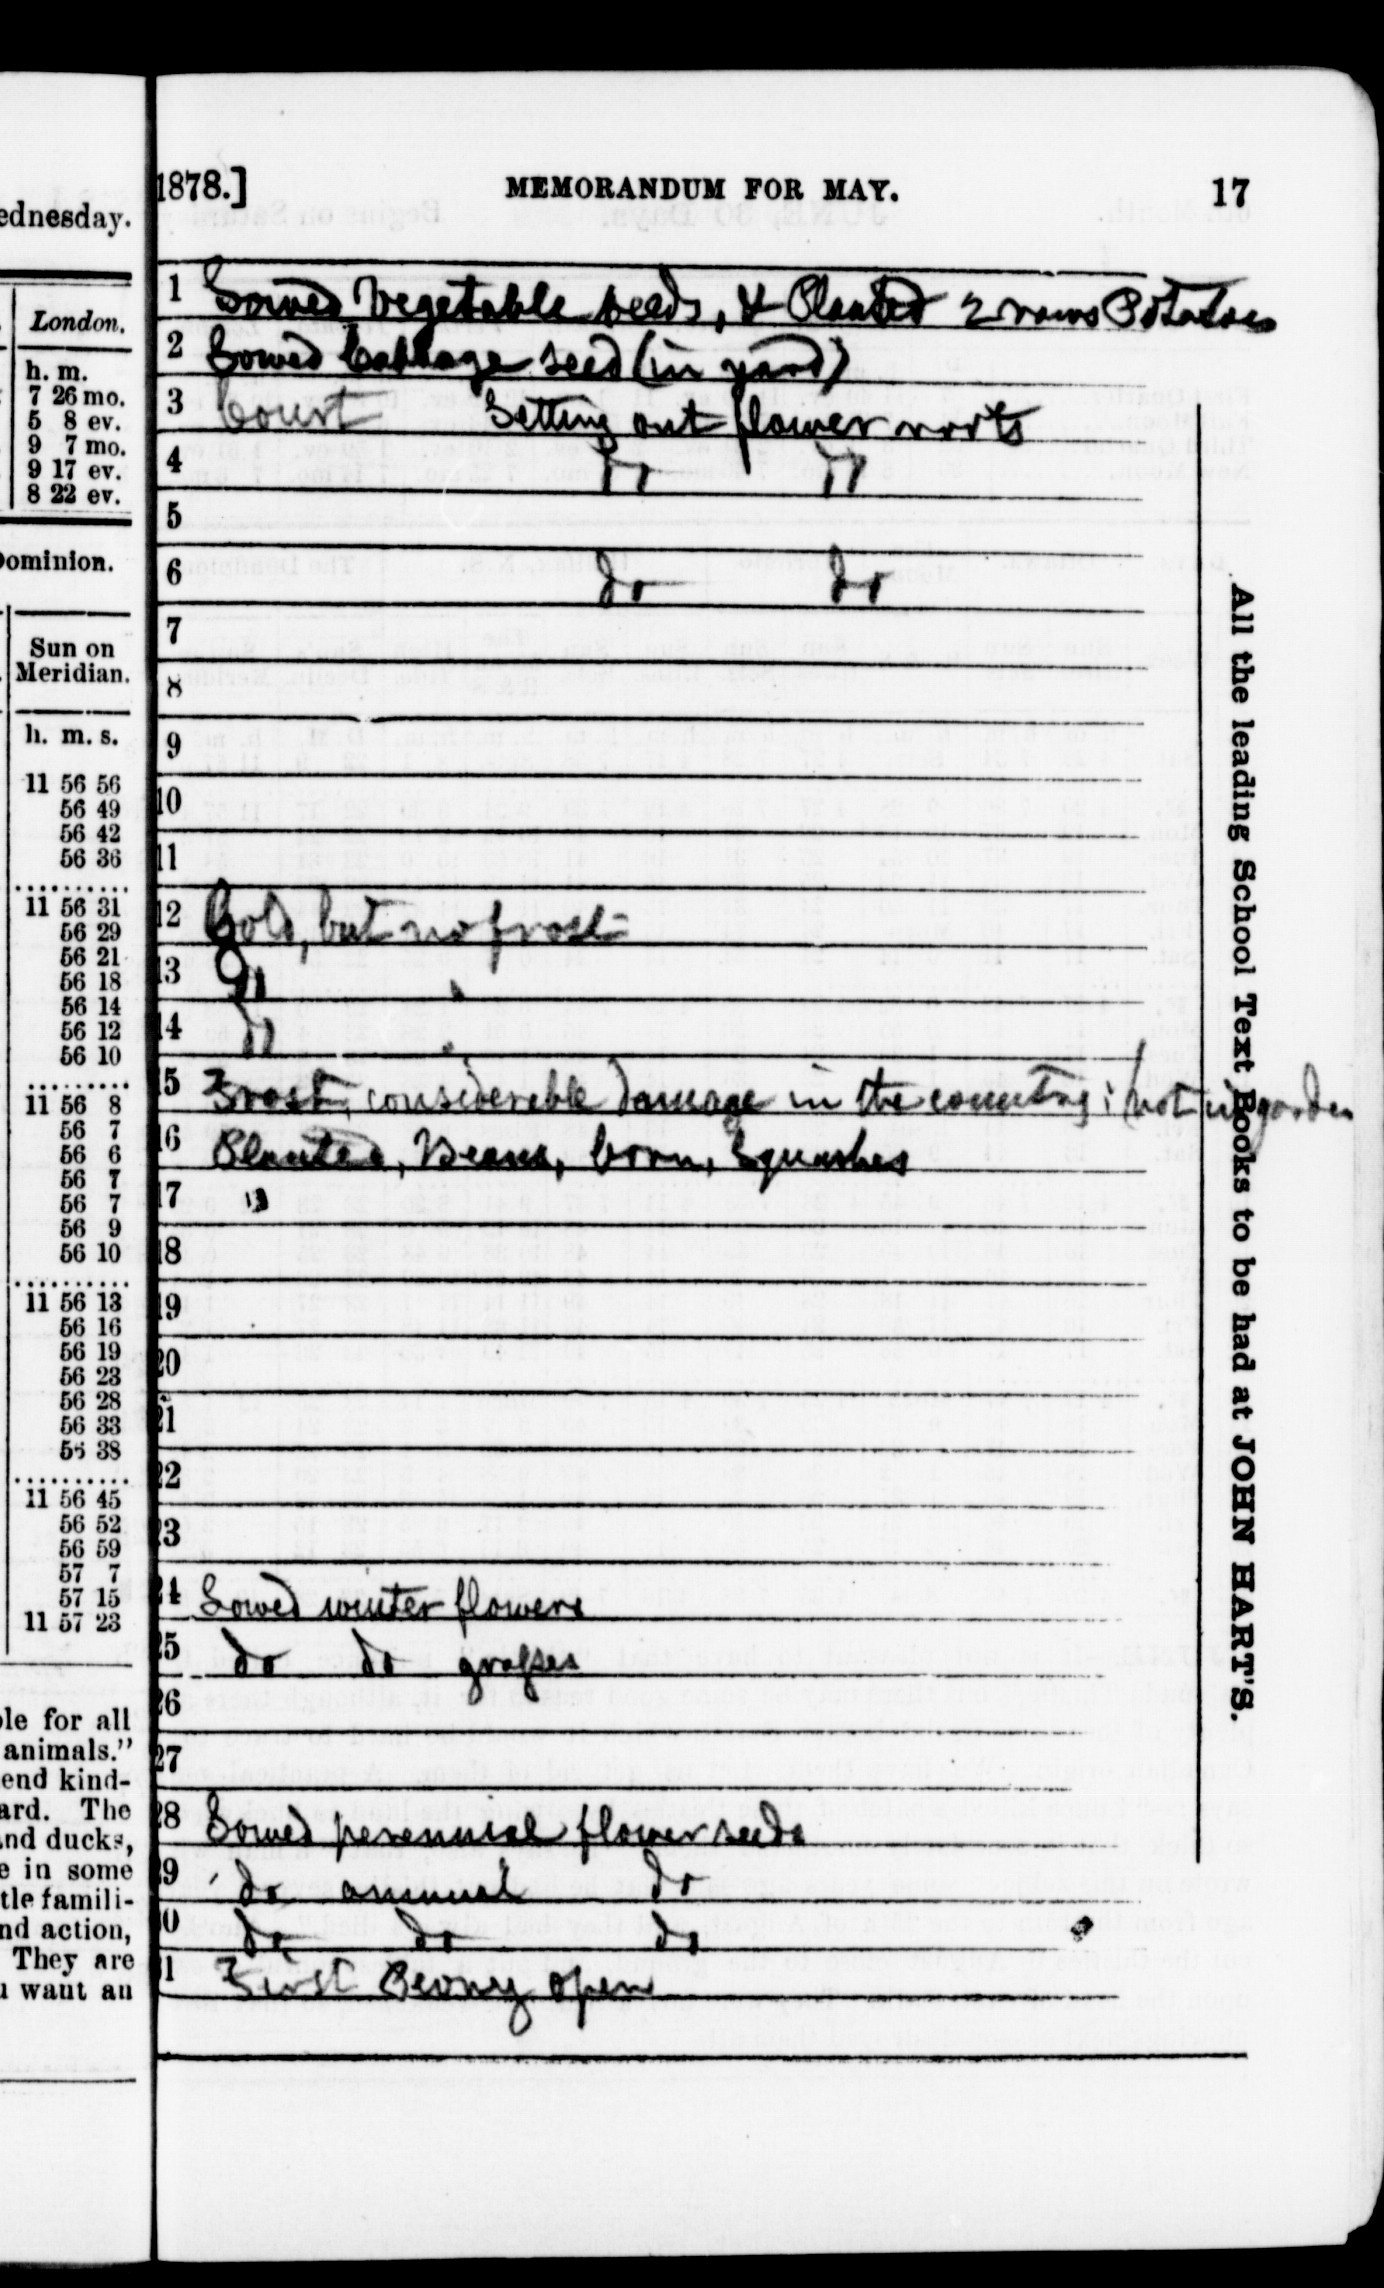 ednesday.
London.
h. m.
7 26 mo.
5 8 ev.
9 7 mo.
9 17 ev.
8 22 ev.
Dominion.
Sun on
Meridian.
h. m. s.
11 56 56
56 49
56 42
56 36
11 56 31
56 29
56 21
56 18
56 14
56 12
56 10
11 56 8
56 7
56 6
56 7
56 7
56 9
56 10
11 56 13
56 16
56 19
56 23
56 28
56 33
56 38
11 56 45
56 52
56 59
57 7
57 15
11 57 23
ole for all
animals."
end kind-
ard. The
and ducks,
e in some
tle famili-
nd action,
They are
u want an
1878.] MEMORANDUM FOR MAY. 17
1 Sowed Vegetable seeds, & Planted 2 rows Potatoes
2 Sowed Cabbage seed (in yard)
3 Court Setting out flower roots
4 do do
5
6 do do
7
8
9
10
11
12 Cold, but no frost
13 do
14 do
15 Frost, considerable damage in the country; (not in garden
16 Planted, Beans, Corn, Squashes
17 "
18
19
20
21
22
23
24 Sowed winter flowers
25 do do grasses
26
27
28 Sowed perennial flower seeds
29 do annual do
30 do do do
31 First Peony open
All the leading School Text Books to be had at JOHN HART'S.